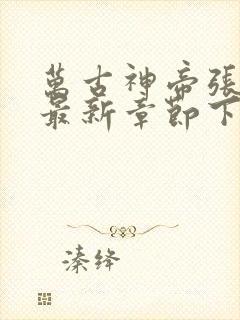 萬古神帝張
最新章節下
溱绛